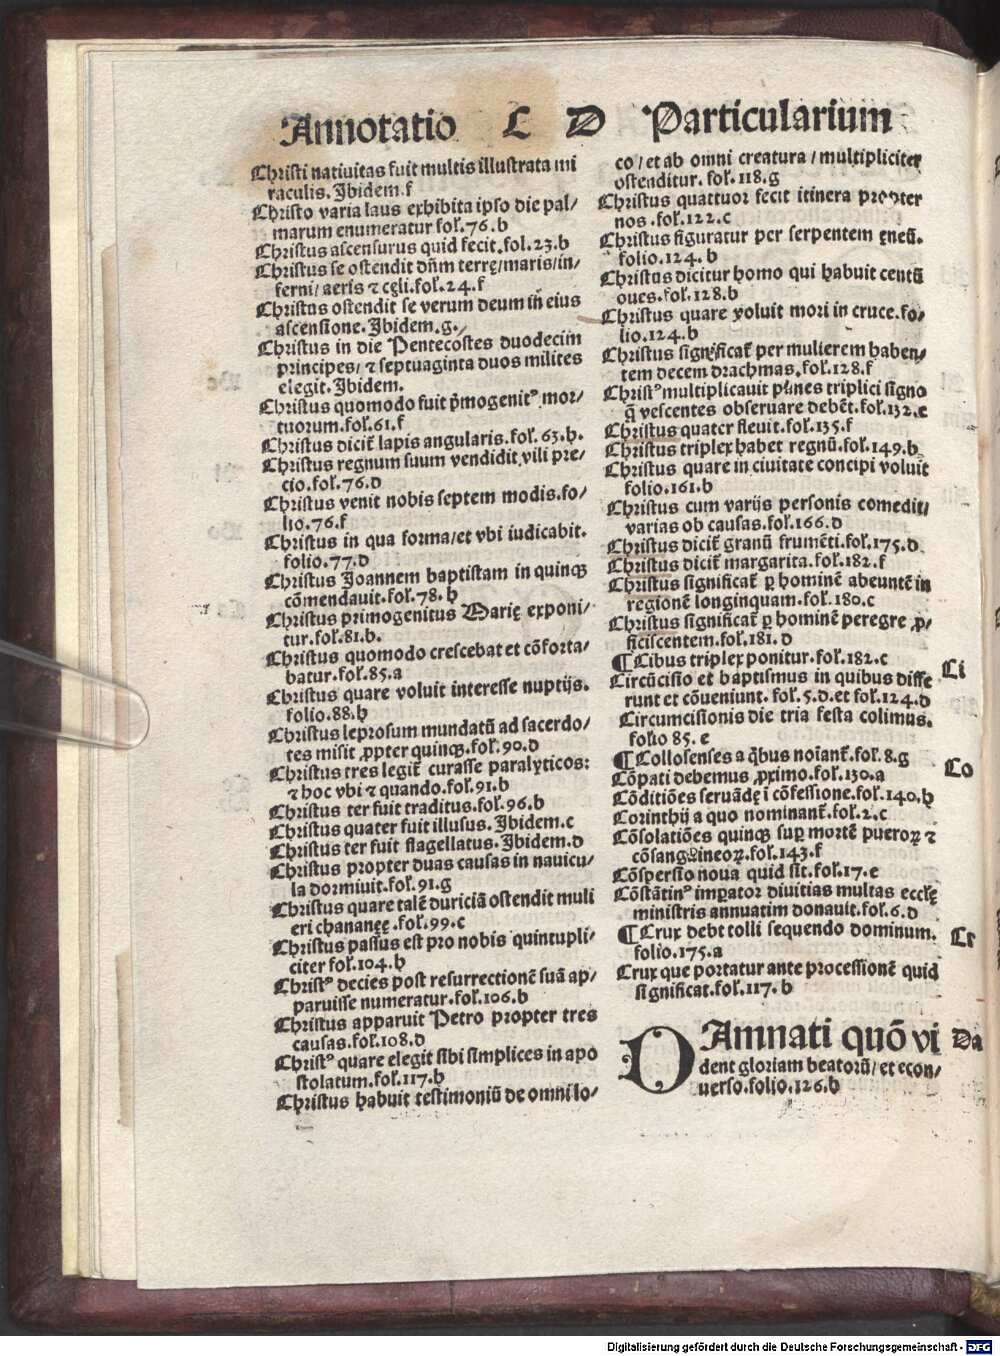 Annotatio C D Particularium
Christi natiuitas fuit multis illustrata mi
raculis. Ibidem.f
Christo varia laus exhibita ipso die pal/
marum enumeratur fol.76.b
Christus ascensurus quid fecit.fol.23.b
Christus se ostendit dñm terrę/maris/in/
ferni/aeris ⁊ cęli.fol.24.f
Christus ostendit se verum deum in eius
ascensione.Ibidem.g.
Christus in die Pentecostes duodecim
principes/⁊ septuaginta duos milites
elegit.Ibidem.
Christus quomodo fuit p̄mogenitꝰ mor/
tuorum.fol.61.f
Christus dicit̄ lapis angularis.fol.63.h.
Christus regnum suum vendidit vili pre/
cio.fol.76.d
Christus venit nobis septem modis.fo/
lio.76.f
Christus in qua forma/et vbi iudicabit.
folio.77.d
Christus Joannem baptistam in quinqꝫ
cōmendauit.fol.78.h
Christus primogenitus Marię exponi/
tur.fol.81.b.
Christus quomodo crescebat et cōforta/
batur.fol.85.a
Christus quare voluit interesse nuptijs.
folio.88.h
Christus leprosum mundatū ad sacerdo/
tes misit ꝓpter quinqꝫ.fol.90.d
Christus tres legit̄ curasse paralyticos:
⁊ hoc vbi ⁊ quando.fol.91.b
Christus ter fuit traditus.fol.96.b
Christus quater fuit illusus. Ibidem.c
Christus ter fuit flagellatus. Ibidem.d
Christus propter duas causas in nauicu/
la dormiuit.fol.91.g
Christus quare talē duriciā ostendit muli
eri chananeę.fol.99.c
Christus passus est pro nobis quintupli/
citer fol.104.h
Christꝰ decies post resurrectionē suā ap/
paruisse numeratur.fol.106.b
Christus apparuit Petro propter tres
causas.fol.108.d
Christꝰ quare elegit sibi simplices in apo
stolatum.fol.117.h
Christus habuit testimoniū de omni lo/
co/et ab omni creatura/multipliciter
ostenditur. fol.118.g
Christus quattuor fecit itinera propter
nos.fol.122.c
Christus figuratur per serpentem ęneū.
folio.124.b
Christus dicitur homo qui habuit centū
oues.fol.128.b
Christus quare voluit mori in cruce.fo/
lio.124.b
Christus significat̄ per mulierem haben/
tem decem drachmas.fol.128.f
Christꝰ multiplicauit panes triplici signo
q̄ vescentes obseruare debēt.fol.132.e
Christus quater fleuit.fol.135.f
Christus triplex habet regnū.fol.149.b
Christus quare in ciuitate concipi voluit
folio.161.b
Christus cum varijs personis comedit/
varias ob causas.fol.166.d
Christus dicit̄ granū frumēti.fol.175.d
Christus dicit̄ margarita.fol.182.f
Christus significat̄ ꝑ hominē abeuntē in
regionē longinquam.fol.180.c
Christus significat̄ ꝑ hominē peregre ꝓ/
ficiscentem.fol.181.d
¶ Cibus triplex ponitur.fol.182.c
Ci
Circūcisio et baptismus in quibus diffe
runt et cōueniunt. fol.5.d.et fol.124.d
Circumcisionis die tria festa colimus.
folio 85.e
¶ Collosenses a q̄bus noīant̄.fol.8.g
Co
Cōpati debemus ꝓximo.fol.130.a
Cōditiōes seruādę ī cōfessione.fol.140.h
Corinthij a quo nominant̄.fol.2.c
Cōsolatiōes quinqꝫ sup̄ mortē pueroꝝ ⁊
cōsanguineoꝝ.fol.143.f
Cōspersio noua quid sit.fol.17.e
Cōstātinꝰ imꝑator diuitias multas eccłę
ministris annuatim donauit.fol.6.d
¶ Crux debt tolli sequendo dominum.
Cr
folio.175.a
Crux que portatur ante processionē quid
significat.fol.117.b
DAmnati quō vi
Da
dent gloriam beatorū/et econ/
uerso.folio.126.b
Digitalisierung gefördert durch die Deutsche Forschungsgemeinschaft - DFG